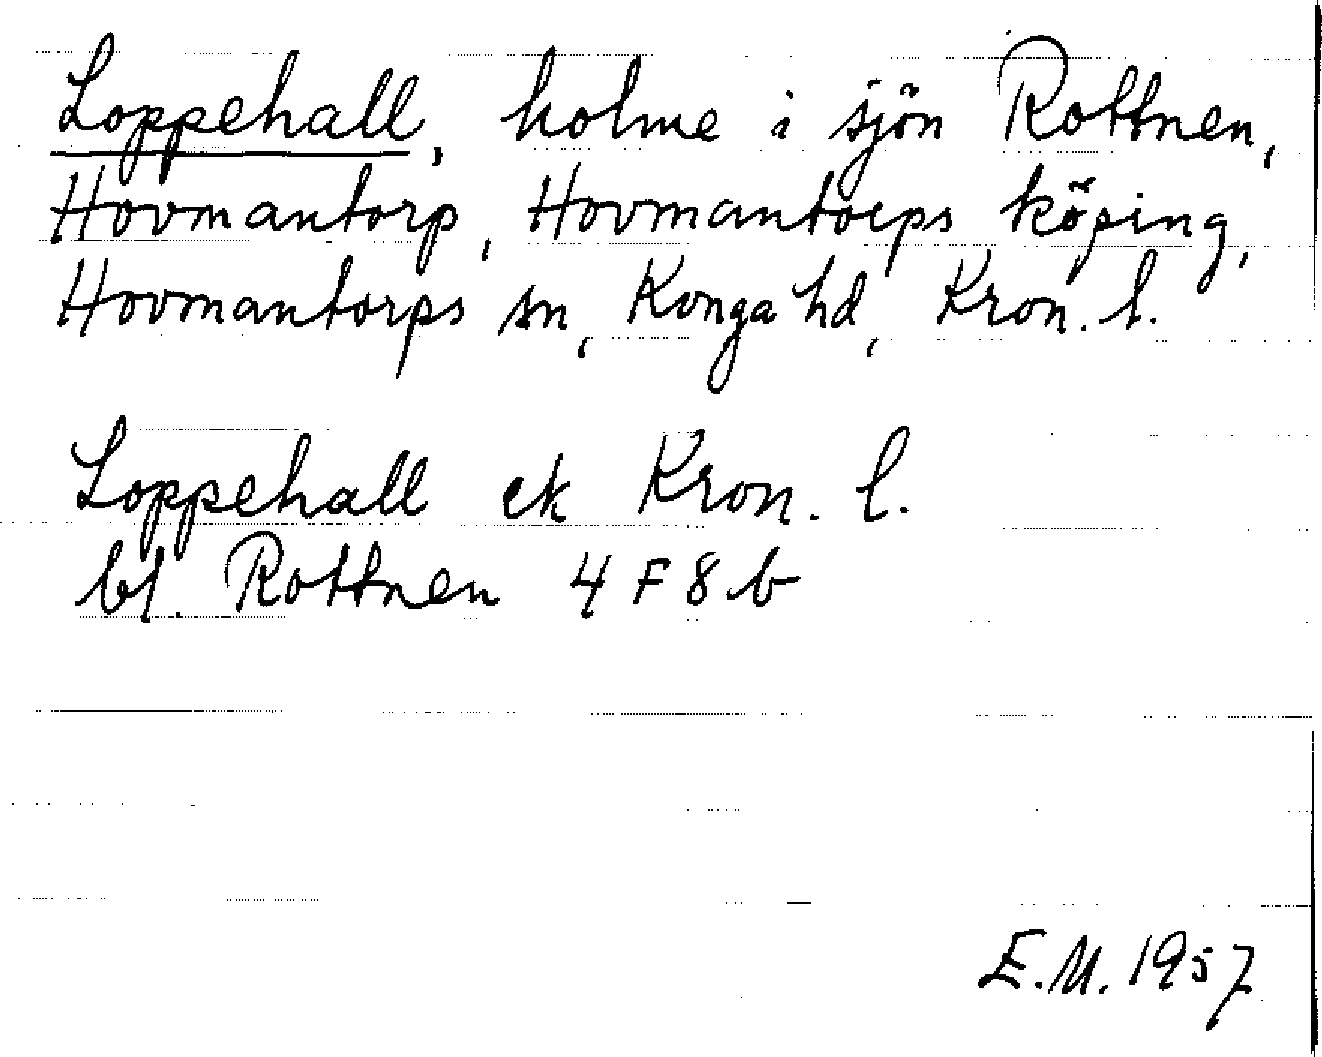 Loppehall, holme i sjön Rottnen,
Hovmantorp, Hovmantorps köping,
Hovmantorps sn, Konga hd, Kron. l.
Loppehall ek Kron. l.
bl. Rottnen 4 F 8 b
E.M. 1957